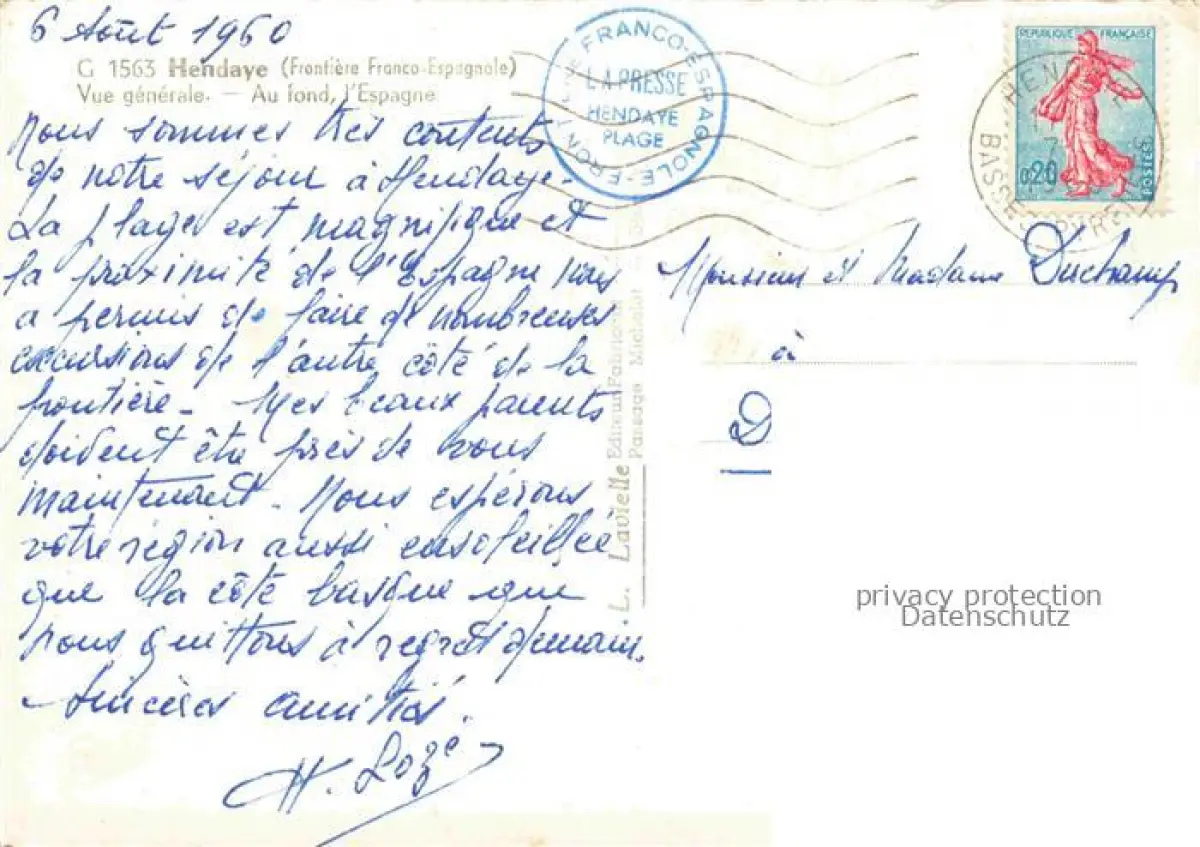 6 Août 1960
G 1563 Hendaye (Frontière Franco-Espagnole)
Vue générale. — Au fond, l'Espagne
Nous sommes très contents
de notre séjour à Hendaye.
La plage est magnifique et
la proximité de l'Espagne nous
a permis de faire de nombreuses
excursions de l'autre côté de la
frontière. Mes beaux parents
doivent être près de vous
maintenant. Nous espérons
votre région aussi ensoleillée
que la côte basque que
nous quittons à regret demain.
Sincères amitiés.
H. Lozé
FRONTIÈRE FRANCO-ESPAGNOLE
LA PRESSE
HENDAYE
PLAGE
REPUBLIQUE FRANÇAISE
0,20
POSTES
HENDAYE
BASSES PYRÉN
L. Lavielle Editeur Fabricant
Passage Michelet
Monsieur et Madame Duchamp
à
D
privacy protection
Datenschutz